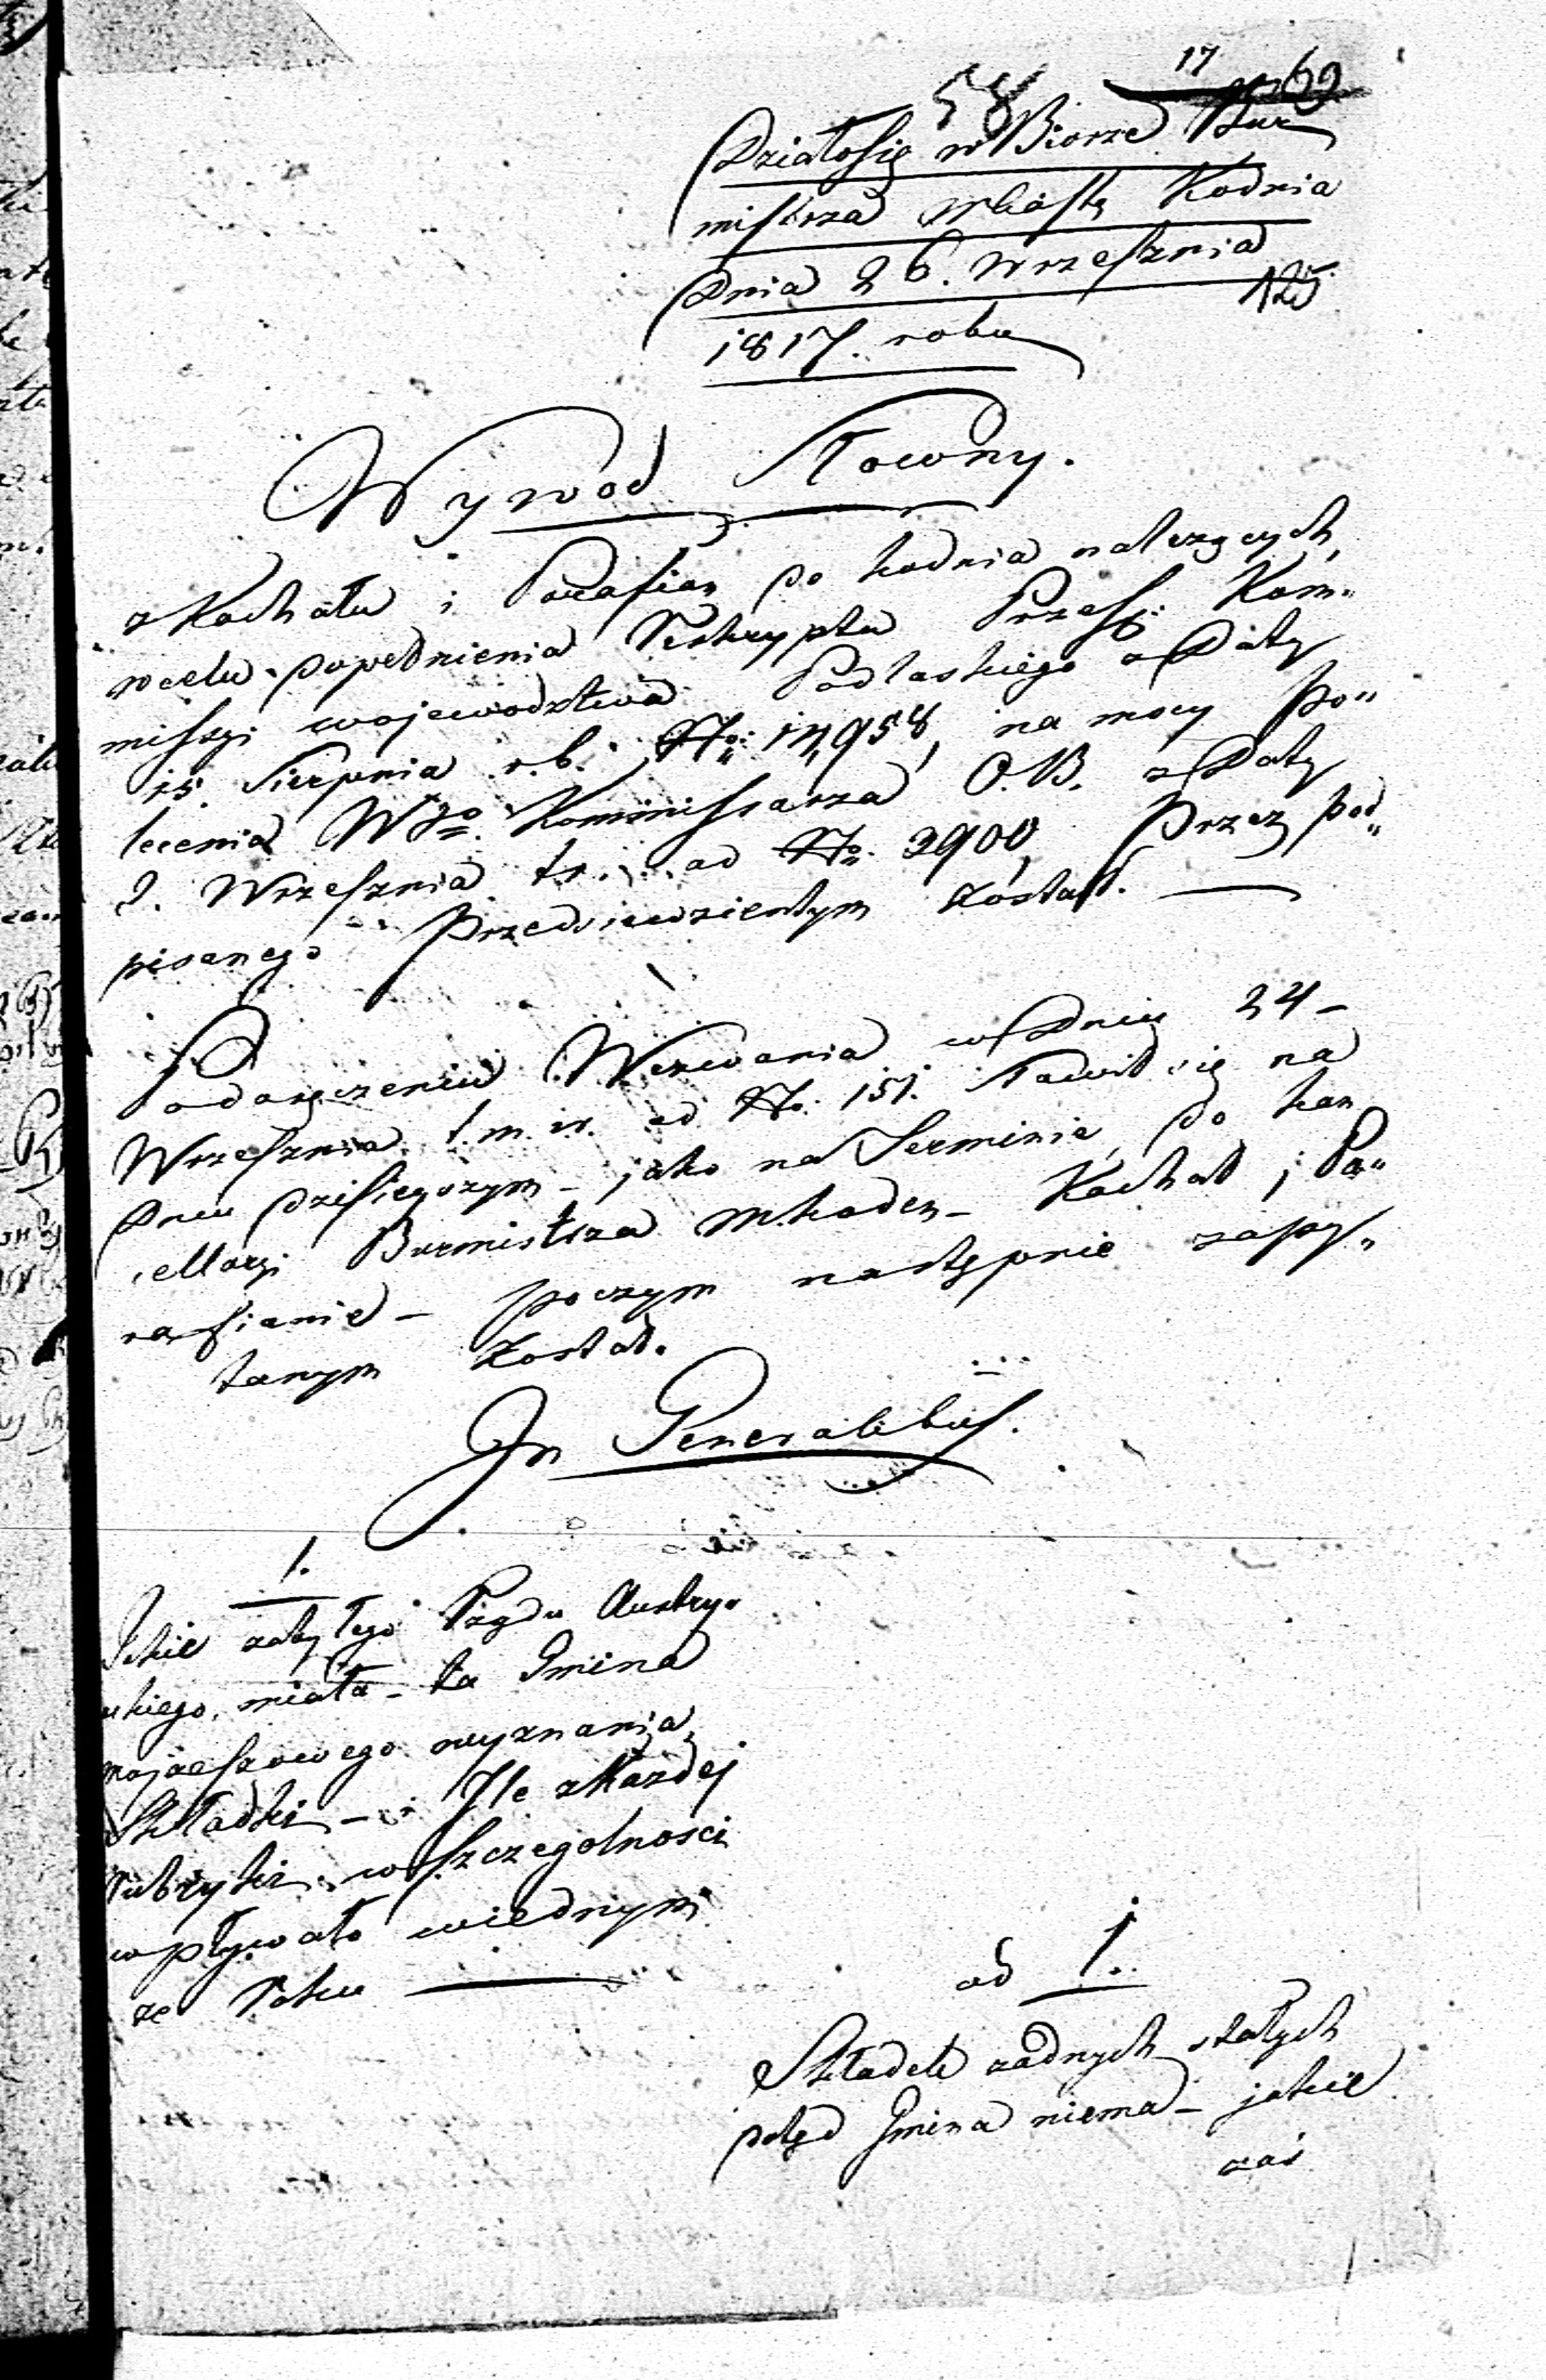 17
58 69
Działosię w Biorze Bur
mistrza Miasta Kodnia
Dnia 26. Wrzesznia
125
1817. roku
Wywod Słowny.
z Kachału i Parafian do Kodnia należących,
w celu dopełnienia Reskryptu Prześ: Kom„
missyi wojewodztwa Podlaskiego z Daty
15. Sierpnia r.b. No: 14,958, na mocy po„
lecenia Wgo Kommissarza O.B. z Daty
2. Wrzesznia tr. ad No. 3900, Przez pod„
pisanego Przedsiewzientym został.
Po doręczeniu Wezwania w Dniu 24 –
Wrzesznia t.m. ir. ad No. 151. stawił się na
Dniu dzisieyszym – jako na Terminie, do kan
cellaryi Burmistrza m. Kodnia – Kachał i Pa„
rafianie – poczym następnie zapy„
tanym został.
In Generalibus.
1.
Jakie zabyłego Rządu Austry„
ackiego, miała – ta Gmina
mojżeszowego wyznania,
Składki – i Ile z każdej
Rubryki, w szczegolności
wpływało wiednym
ze Roku
ad 1.
Składek żadnych stałych
dotąd Gmina niema – jakie
zaś